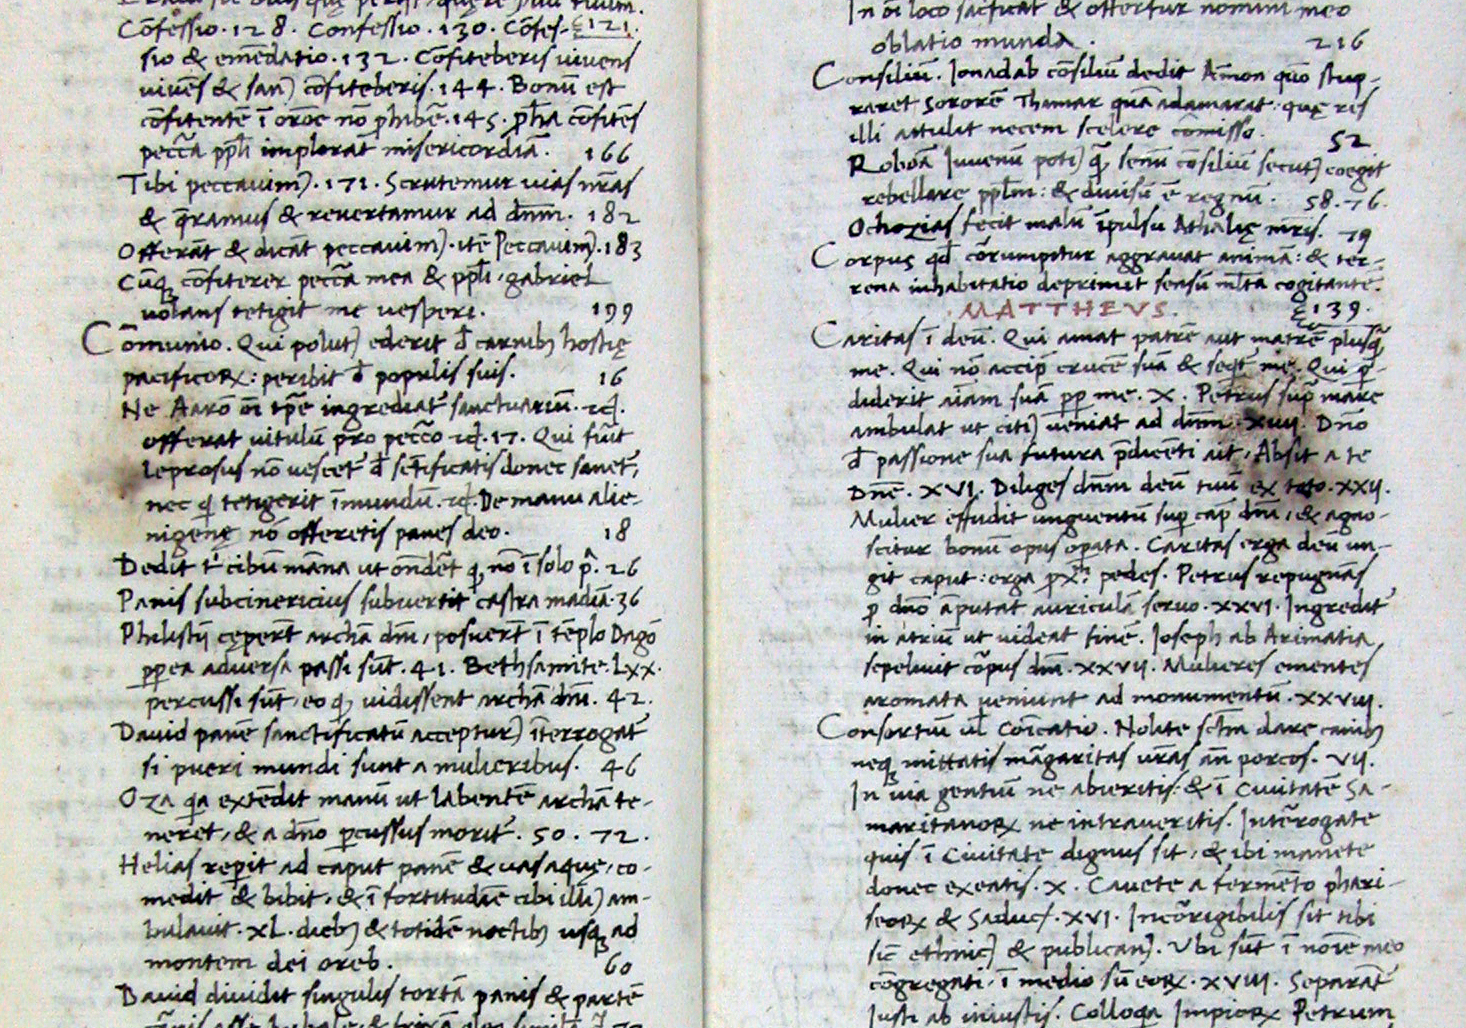 Cōfessio. 128. Confessio. 130. Cōfes- 121.
sio & emēdatio. 132. Cōfiteberis vivens
vivēs & san) cōfiteberis. 144. Bonū est
cōfitentē ī orōe nō ꝓhibē. 145. ꝓh̄a cōfitēs
peccā ppl̄i implorat misericordiā. 166
Tibi peccavim). 171. Scrutemur vias nr̄as
& q̄ramus & revertamur ad dn̄m. 182
Offerāt & dicāt peccavim). itē Peccavim). 183
Cūq cōfiterer peccā mea & ppl̄i, gabriel
volans tetigit me vesperi. 199
Cōmunio. Qui polut) ederit d̄ carnib) hostię
pacificoꝝ: peribit d̄ populis suis. 16
Ne Aarō oī tp̄e ingrediat̄ sanctuariū. id.
offerat vitulū pro peccō id. 17. Qui fūit
leprosus nō vescet̄ d̄ sc̄tificatis donec sanet̄,
nec q̄ tetigerit īmundū. id. De manu alie-
nigenę nō offeretis panes deo. 18
Dedit t' cibū māna ut ōndēt q, nō ī solo p̄. 26
Panis subcinericius subvertit castra madiā. 36
Philistīj cęper̄t archā dn̄i, posuer̄t ī tēplo Dagō
ꝓpea adversa passi sūt. 41. Bethsamite. Lxx.
percussi sūt, eo q, vidissent archā dn̄i. 42.
David panē sanctificatū acceptur) īterrogat̄
si pueri mundi sunt a mulieribus. 46
Oza q̄a extēdit manū ut labentē archā te-
neret, & a dn̄o ꝑcussus morit̄. 50. 72.
Helias reperit ad caput panē & vas aquę, co-
medit & bibit, & ī fortitudīe cibi illi) am-
bulavit. XL. dieb) & totidē noctib) usq ad
montem dei oreb. 60
David dividit singulis tortā panis & partē
In oī loco sacficat & offertur nomini meo
oblatio munda. 216
Consiliū. Jonadab cōsiliū dedit Am̄on quō stup-
raret sororē Thamar quā adamarat. quę res
illi attulit necem scelere cōmisso. 52
Roboā Juvenū poti) q̄, senū cōsiliū secut) coegit
rebellare ppl̄m: & divisū ē regnū. 58. 76.
Ochozias fecit malū īpulsu Athalię mr̄is. 79
Corpus qd̄ cōrumpitur aggravat animā: & ter-
rena inhabitatio deprimit sensū ml̄ta cogitantē.
MATTHEVS. 139.
Caritas ī deū. Qui amat patrē aut matrē plusq̄,
me. Qui nō accip̄ crucē suā & seqt̄ me. Qui p̄-
diderit aīam suā ꝓp me. X. Petrus sup̄ mare
ambulat ut citi) veniat ad dn̄m. XIIII. Dn̄o
d̄ passione sua futura p̄dicēti ait, Absit a te
Dn̄e. XVI. Diliges dn̄m deū tuū ex toto. XXII.
Mulier effudit unguentū sup̄ cap̄ dn̄i, & agno-
scitur bonū opus oꝑata. Caritas erga deū un-
git caput: erga ꝓx̄: pedes. Petrus repugnās
ꝓ dn̄o āputat auriculā servo. XXVI. Ingredit̄
in atriū ut videat finē. Joseph ab Arimatia,
sepelivit cōpus dn̄i. XXVII. Mulieres ementes
aromata veniunt ad monumentū. XXVIII.
Consortiū ul̄ Coīcatio. Nolite sc̄tm dare canib)
neq mittatis māgaritas vr̄as an̄ porcos. VII.
In via gentiū ne abieritis: & ī Civitatē Sa-
maritanoꝝ ne intraveritis. Intērogate
quis ī Civitate dignus sit, & ibi manete
donec exeatis. X. Cavete a fermēto phari-
seoꝝ & Saducf. XVI. Incōrigibilis sit tibi
sic̄ ethnic) & publican). Ubi sūt ī noīe meo
cōgregati, ī medio sū eoꝝ. XVIII. Separāt̄
Justi ab iniustis. Colloqa Impioꝝ Petrum